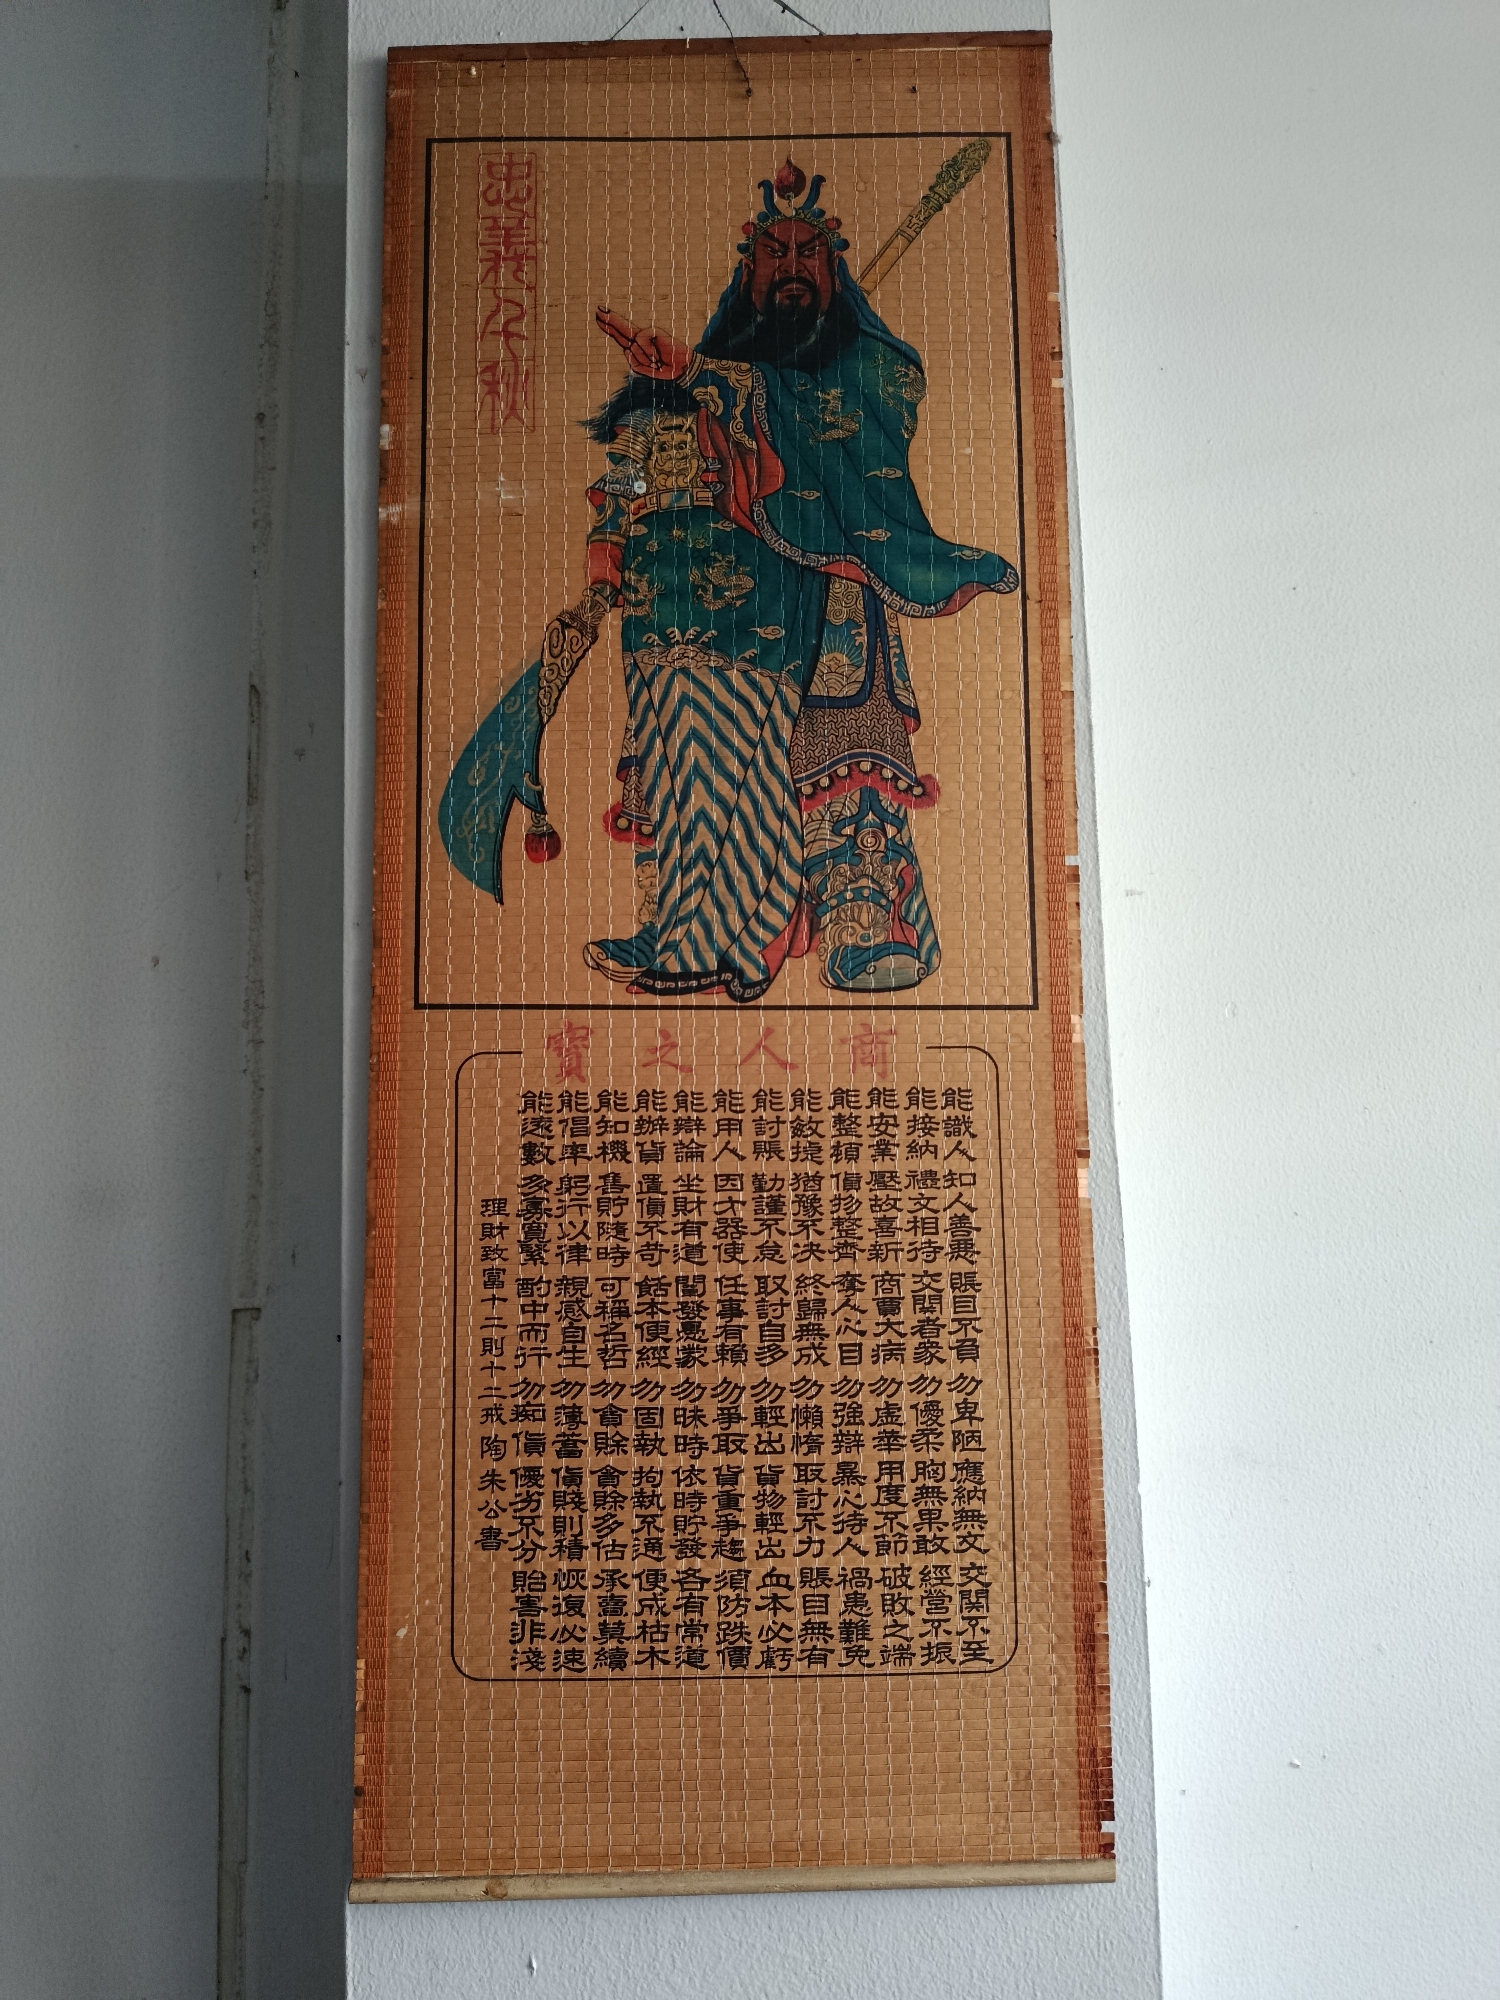 忠義千秋
商人之寶
能識人 知人善惡 賬目不負 勿卑陋 應納無文 交関不至
能接納 禮文相待 交関者衆 勿優柔 胸無果敢 經營不振
能安業 壓故喜新 商賈大病 勿虛華 用度不節 破敗之端
能整頓 貨物整齊 奪人心目 勿強辯 暴心待人 禍患難免
能敏捷 猶豫不决 終歸無成 勿懶惰 取討不力 賬目無有
能討賬 勤謹不怠 取討自多 勿輕出 貨物輕出 血本必虧
能用人 因才器使 任事有賴 勿爭取 貨重爭趨 須防跌價
能辯論 坐財有道 闡發愚蒙 勿昧時 依時貯發 各有常道
能辦貨 置貨不苛 餂本便經 勿固執 拘執不通 便成枯木
能知機 售貯隨時 可稱名哲 勿貪賒 貪賒多估 承賷莫續
能倡率 躬行以律 親感自生 勿薄蓄 貨賤則積 恢復必速
能遠數 多寡寬緊 酌中而行 勿痴貨 優劣不分 貽害非淺
理財致富十二則十二戒陶朱公書